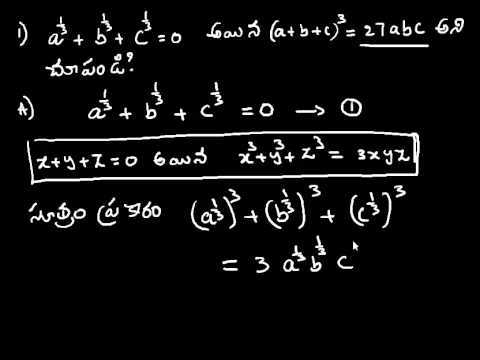 1) a^(1/3) + b^(1/3) + c^(1/3) = 0 అయిన (a+b+c)^3 = 27abc అని
చూపండి?
A) a^(1/3) + b^(1/3) + c^(1/3) = 0 → ①
x+y+z=0 అయిన x^3+y^3+z^3 = 3xyz
సూత్రం ప్రకారం (a^(1/3))^3 + (b^(1/3))^3 + (c^(1/3))^3
= 3 a^(1/3) b^(1/3) c